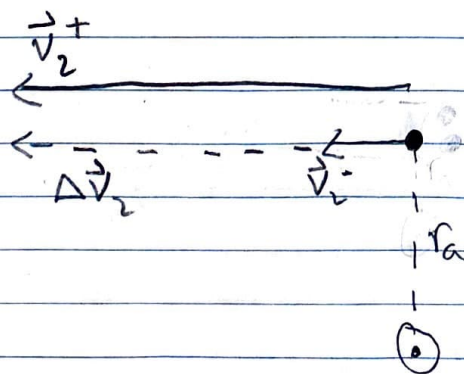 v⃗₂⁺
Δv⃗₂
v⃗₂⁻
rₐ